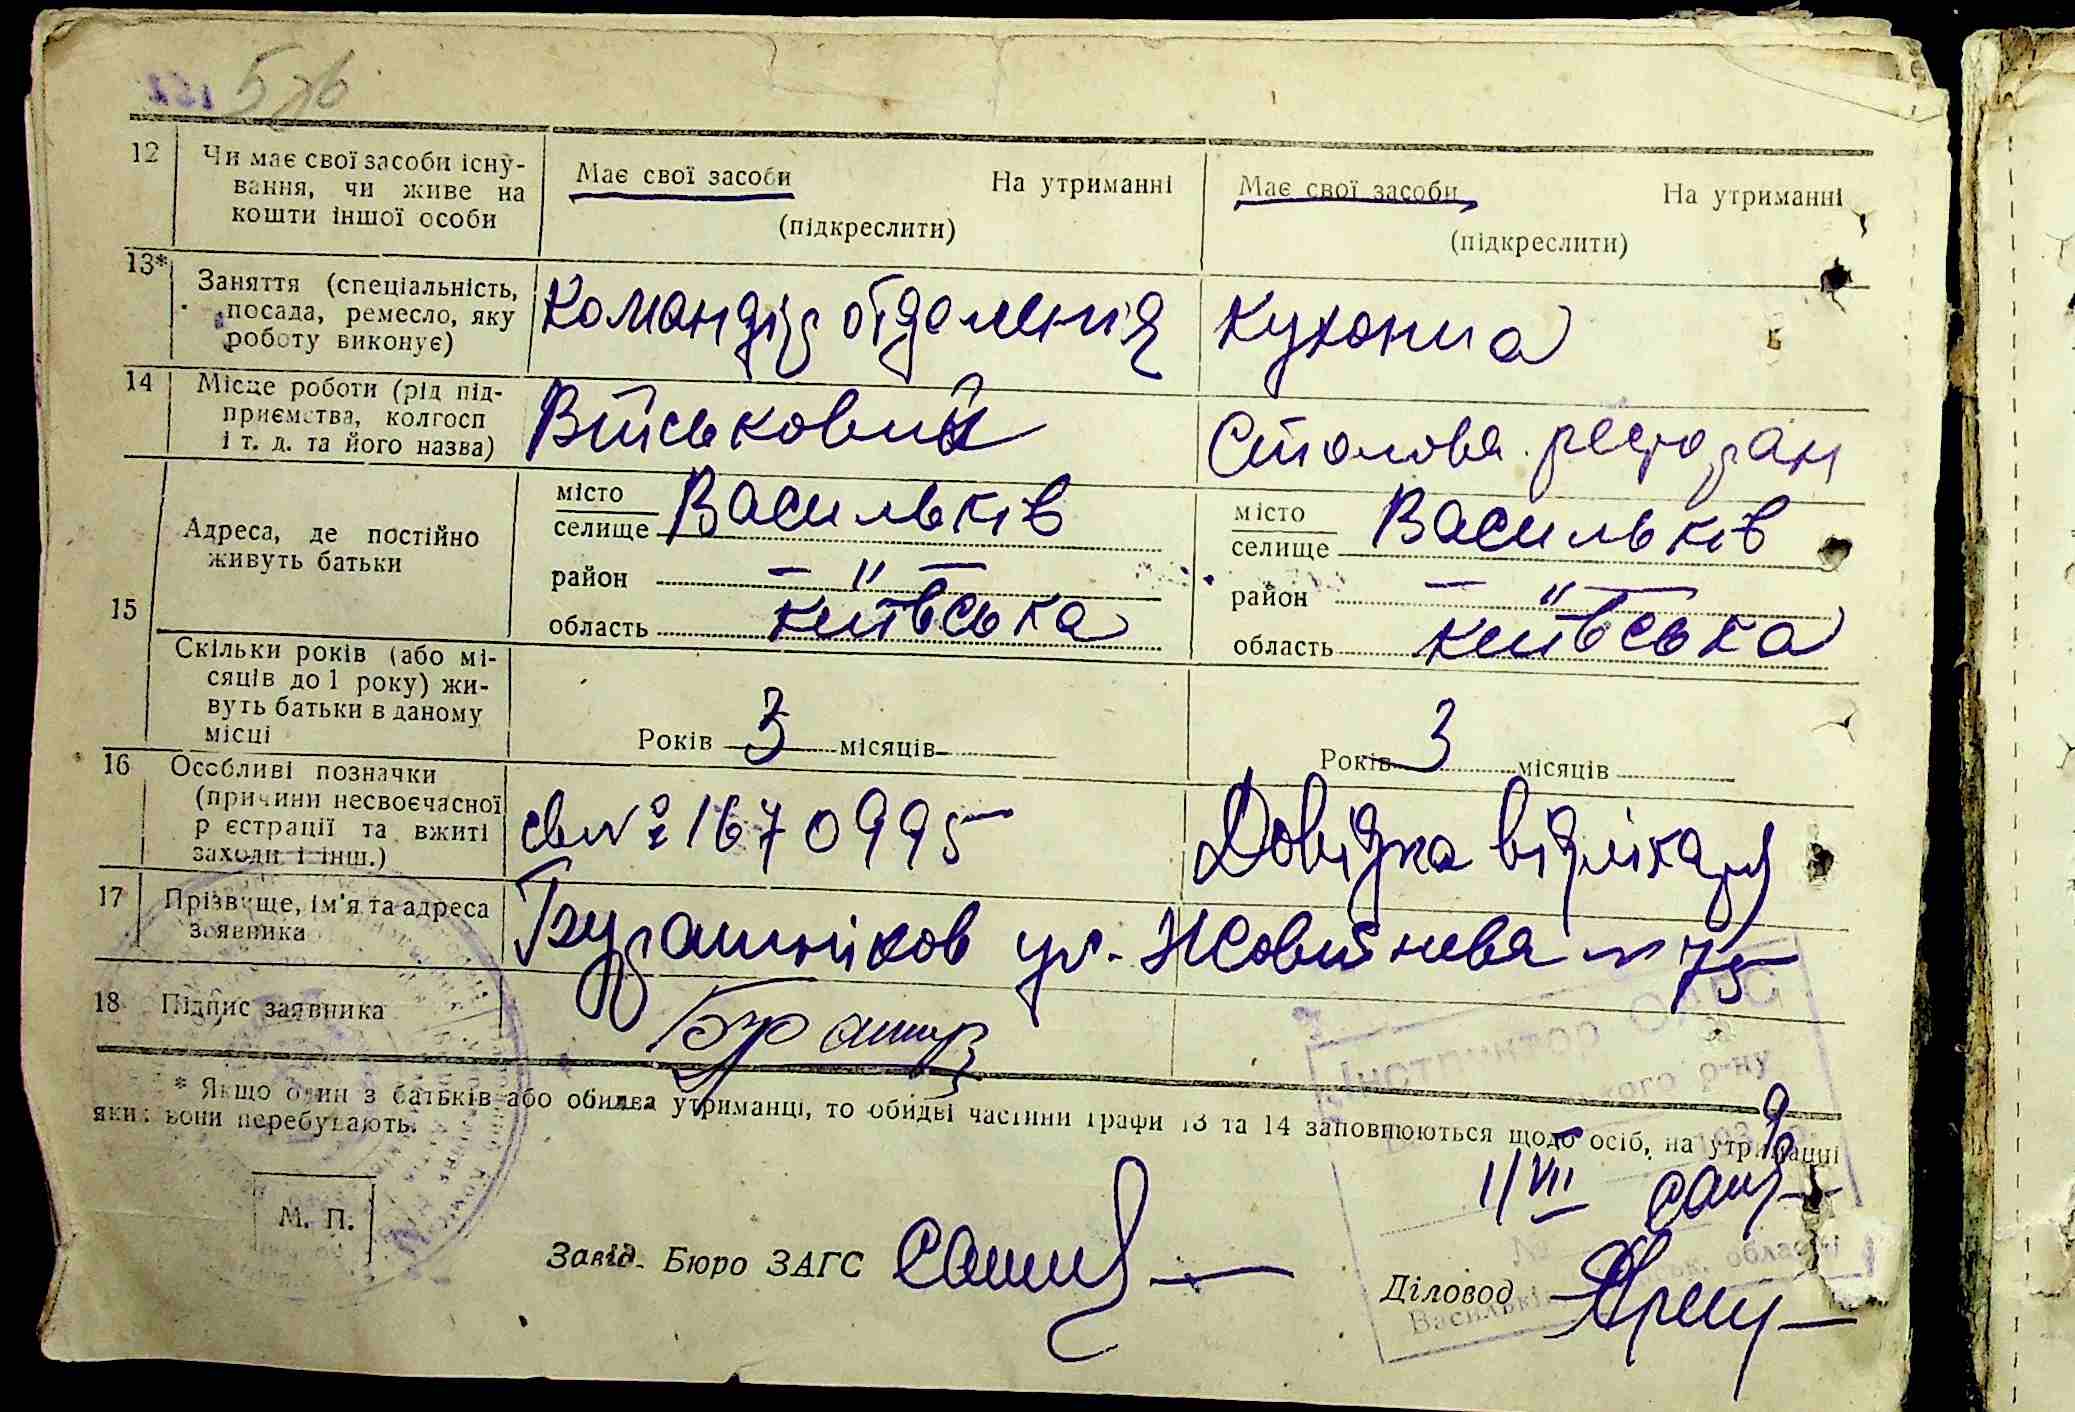 576
12 Чи має свої засоби існу-
вання, чи живе на
кошти іншої особи
Має свої засоби На утриманні
(підкреслити)
Має свої засоби На утриманні
(підкреслити)
13* Заняття (спеціальність,
посада, ремесло, яку
роботу виконує)
Командір отделенія
Кухонна
14 Місце роботи (рід під-
приємства, колгосп
і т. д. та його назва)
Військовий
Столова ресторан
15 Адреса, де постійно
живуть батьки
місто
селище Васильків
район — " —
область київська
місто
селище Васильків
район — " —
область київська
Скільки років (або мі-
сяців до 1 року) жи-
вуть батьки в даному
місці
Років 3 місяців
Років 3 місяців
16 Особливі позначки
(причини несвоєчасної
реєстрації та вжиті
заходи і інш.)
св № 1670995
Довідка від лікаря
17 Прізвище, ім'я та адреса
заявника
ул. Жовтнева № 75
18 Підпис заявника
* Якщо один з батьків або обидва утриманці, то обидві частини графи 13 та 14 заповнюються щодо осіб, на утриманні
яких вони перебувають.
1/VII
М. П.
Завід. Бюро ЗАГС
Діловод
Інструктор ОАГС
р-ну
№
області